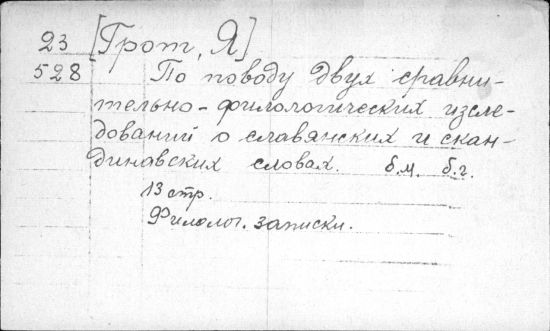 23 [Грот, Я]
528 По поводу двух сравни-
тельно-филологических изсле-
дований о славянских и скан-
динавских словах. б.м. б.г.
13 стр.
Филолог. записки.